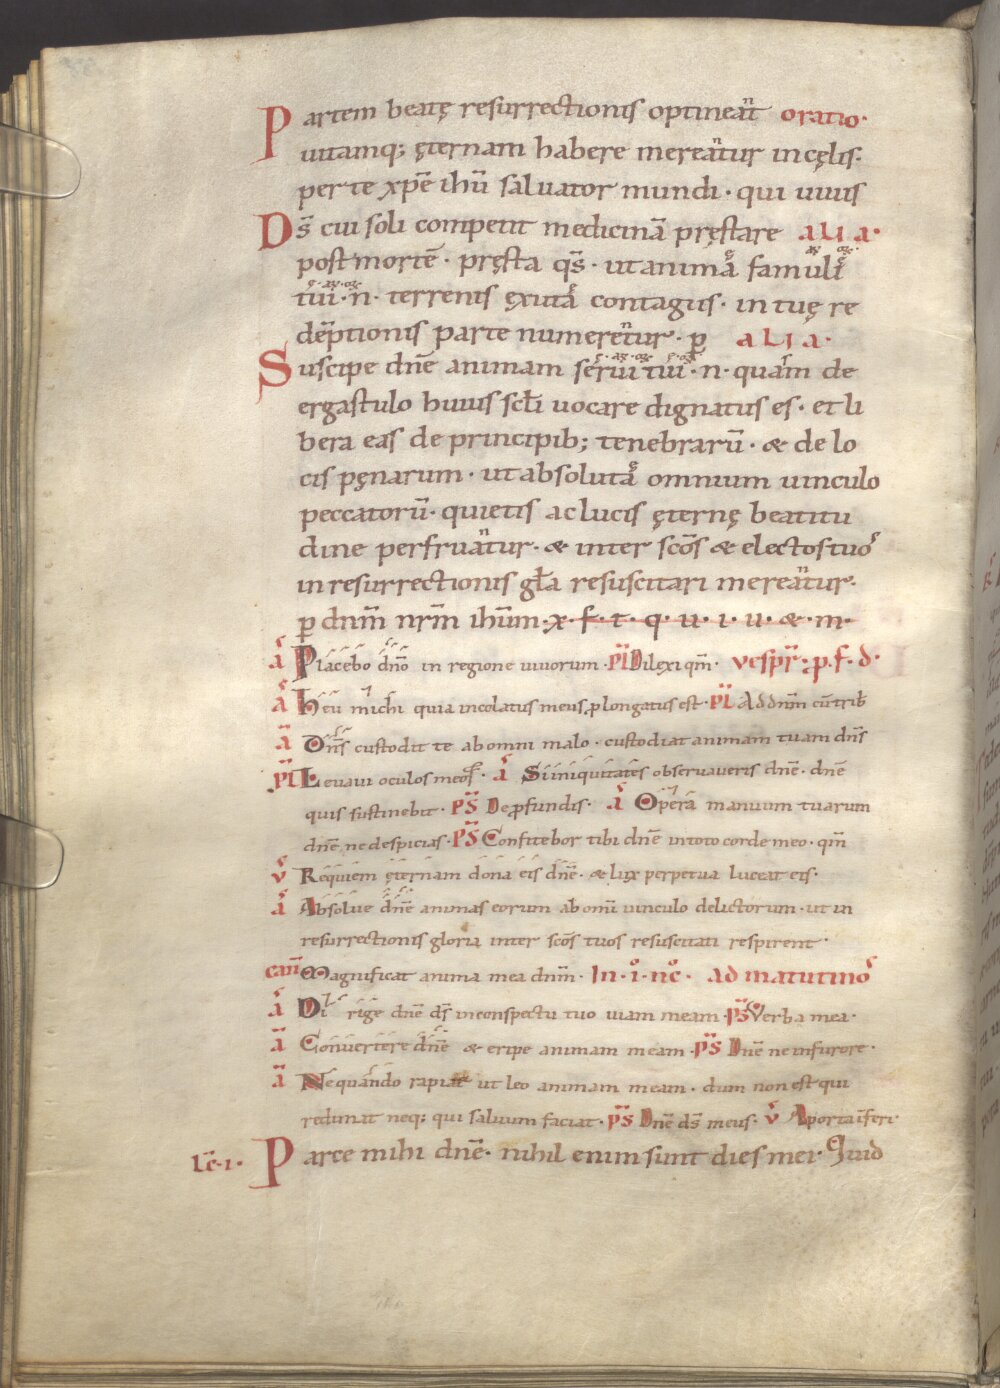 Partem beatę resurrectionis optineat̄ oratio·
uitamq; ęternam habere mereat̄ur in cęlis·
per te xp̄e ih̄u saluator mundi· qui uiuis
Ds̄ cui soli competit medicinā pręstare alia·
post mortē· pręsta qs̄· ut animā famuli
tui·n· terrenis ęxutā contagiis· in tuę re
dēptionis parte numeret̄ur· ꝑ alia·
Suscipe dn̄e animam serui tui·n· quam de
ergastulo huius scl̄i uocare dignatus es· et li
bera eas de principib; tenebrarū· & de lo
cis pęnarum· ut absolutā omnium uinculo
peccatorū· quietis ac lucis ęternę beatitu
dine perfruat̄ur· & inter scōs & electos tuos
in resurrectionis gl̄a resuscitari mereat̄ur·
ꝑ dnm̄ nrm̄ ihm̄·x·f·t·q·u·i·u·&·m·
ā Placebo dn̄o in regione uiuorum· pl Dilexi qm̄· uesp̄r·p·f·d·
ā Heu michi quia incolatus meus ꝓlongatus est· pl Ad dnm̄ cū trib
ā Dn̄s custodit te ab omni malo· custodiat animam tuam dn̄s
pl Leuaui oculos meos· ā Si iniquitates obseruaueris dn̄e· dn̄e
quis sustinebit· ps̄ De ꝓfundis· ā Opera manuum tuarum
dn̄e ne despicias· ps̄ Confitebor tibi dn̄e in toto corde meo· qm̄
v̄ Requiem ęternam dona eis dn̄e· & lux perpetua luceat eis·
ā Absolue dn̄e animas eorum ab omī uinculo delictorum· ut in
resurrectionis gloria inter scōs tuos resuscitati respirent·
cant̄ Magnificat anima mea dnm̄· In·i·noc̄· ad matutinos
ā Dirige dn̄e ds̄ in conspectu tuo uiam meam· ps̄ Verba mea·
ā Conuertere dn̄e & eripe animam meam· ps̄ Dn̄e ne in furore·
ā Nequando rapiat ut leo animam meam· dum non est qui
redimat neq; qui saluum faciat· ps̄ Dn̄e ds̄ meus· v̄ A porta īferi·
Lc̄·i· Parce mihi dn̄e· nihil enim sunt dies mei· Quid